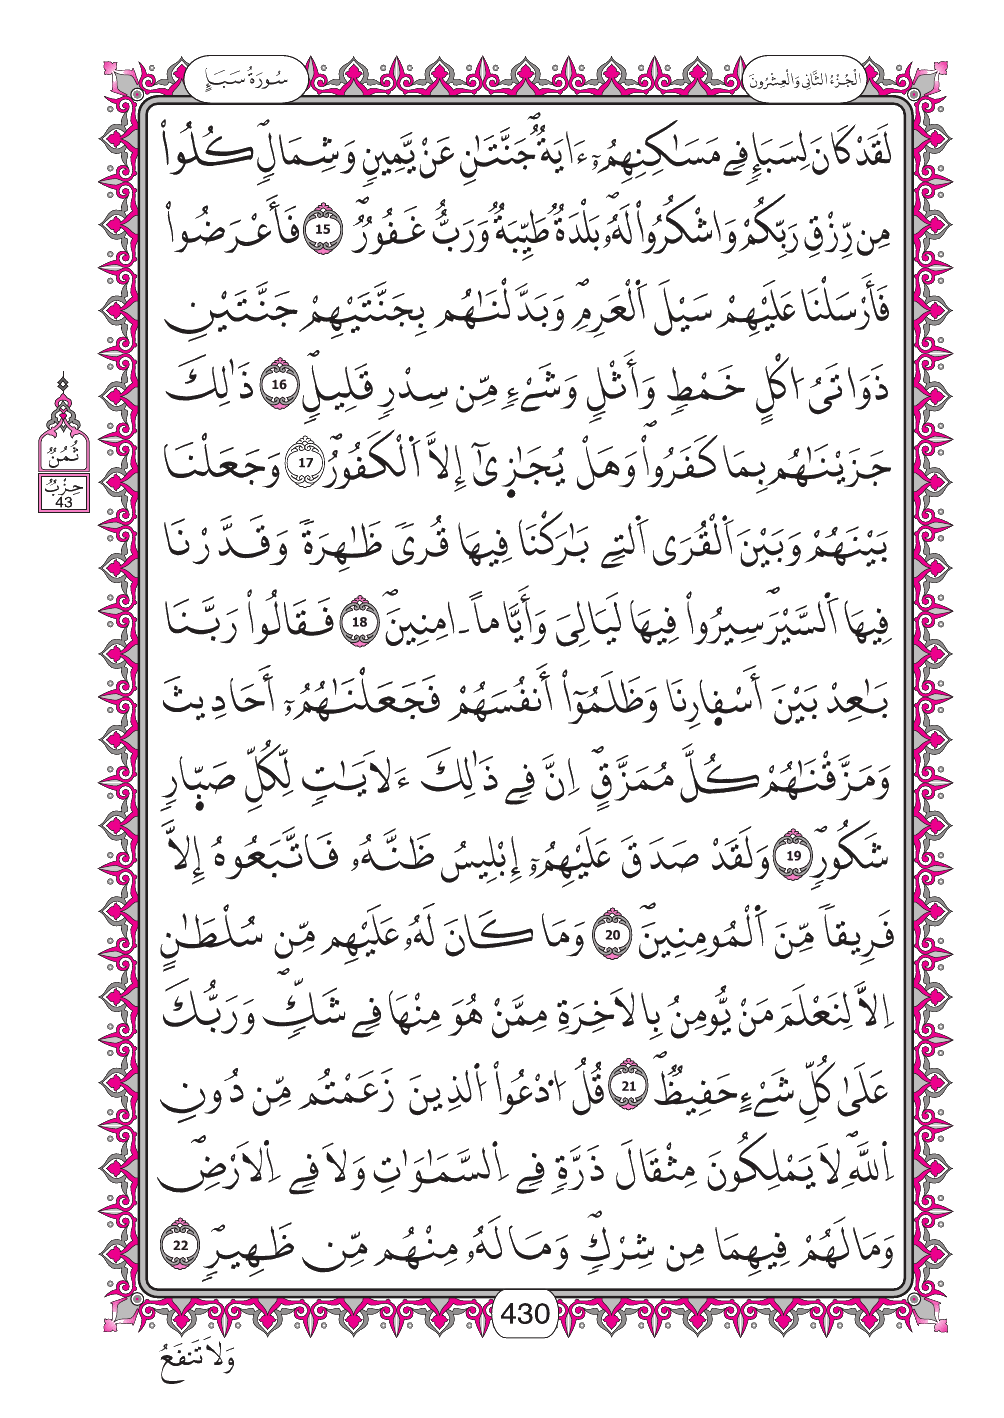 الْجُزْءُ الثَّانِي وَالْعِشْرُونَ
سُورَةُ سَبَإٍ
لَقَدْ كَانَ لِسَبَإٖ فِے مَسَٰكِنِهِمُۥٓ ءَايَةٌۖ جَنَّتَٰنِ عَنْ يَّمِينٖ وَشِمَالٖۖ كُلُواْ
مِن رِّزْقِ رَبِّكُمْ وَاشْكُرُواْ لَهُۥۖ بَلْدَةٞ طَيِّبَةٞ وَرَبٌّ غَفُورٞۖ 15 فَأَعْرَضُواْ
فَأَرْسَلْنَا عَلَيْهِمْ سَيْلَ اَ۬لْعَرِمِۖ وَبَدَّلْنَٰهُم بِجَنَّتَيْهِمْ جَنَّتَيْنِ
ذَوَاتَےُ ا۟كْلٍ خَمْطٖ وَأَثْلٖ وَشَےْءٖ مِّن سِدْرٖ قَلِيلٖۖ 16 ذَٰلِكَ
جَزَيْنَٰهُم بِمَا كَفَرُواْۖ وَهَلْ يُجَٰز۪ىٰٓ إِلَّا اَ۬لْكَفُورُۖ 17 وَجَعَلْنَا
بَيْنَهُمْ وَبَيْنَ اَ۬لْقُرَى اَ۬لتِے بَٰرَكْنَا فِيهَا قُريٗ ظَٰهِرَةٗ وَقَدَّرْنَا
فِيهَا اَ۬لسَّيْرَۖ سِيرُواْ فِيهَا لَيَالِيَ وَأَيَّاماً اٰمِنِينَۖ 18 فَقَالُواْ رَبَّنَا
بَٰعِدْ بَيْنَ أَسْف۪ارِنَا وَظَلَمُوٓاْ أَنفُسَهُمْ فَجَعَلْنَٰهُمُۥٓ أَحَادِيثَ
وَمَزَّقْنَٰهُمْ كُلَّ مُمَزَّقٍۖ اِنَّ فِے ذَٰلِكَ ءَلَايَٰتٖ لِّكُلِّ صَبّ۪ارٖ
شَكُورٖۖ 19 وَلَقَدْ صَدَقَ عَلَيْهِمُۥٓ إِبْلِيسُ ظَنَّهُۥ فَاتَّبَعُوهُ إِلَّا
فَرِيقاٗ مِّنَ اَ۬لْمُومِنِينَۖ 20 وَمَا كَانَ لَهُۥ عَلَيْهِم مِّن سُلْطَٰنٍ
اِلَّا لِنَعْلَمَ مَنْ يُّومِنُ بِالَاخِرَةِ مِمَّنْ هُوَ مِنْهَا فِے شَكّٖۖ وَرَبُّكَ
عَلَىٰ كُلِّ شَےْءٍ حَفِيظٞۖ 21 قُلُ ا۟دْعُواْ اُ۬لذِينَ زَعَمْتُم مِّن دُونِ
اِ۬للَّهِۖ لَا يَمْلِكُونَ مِثْقَالَ ذَرَّةٖ فِے اِ۬لسَّمَٰوَٰتِ وَلَا فِے اِ۬لَارْضِۖ
وَمَا لَهُمْ فِيهِمَا مِن شِرْكٖۖ وَمَا لَهُۥ مِنْهُم مِّن ظَهِيرٖۖ 22
ثُمُنُ
حِزْبُ
43
430
وَلَا تَنفَعُ